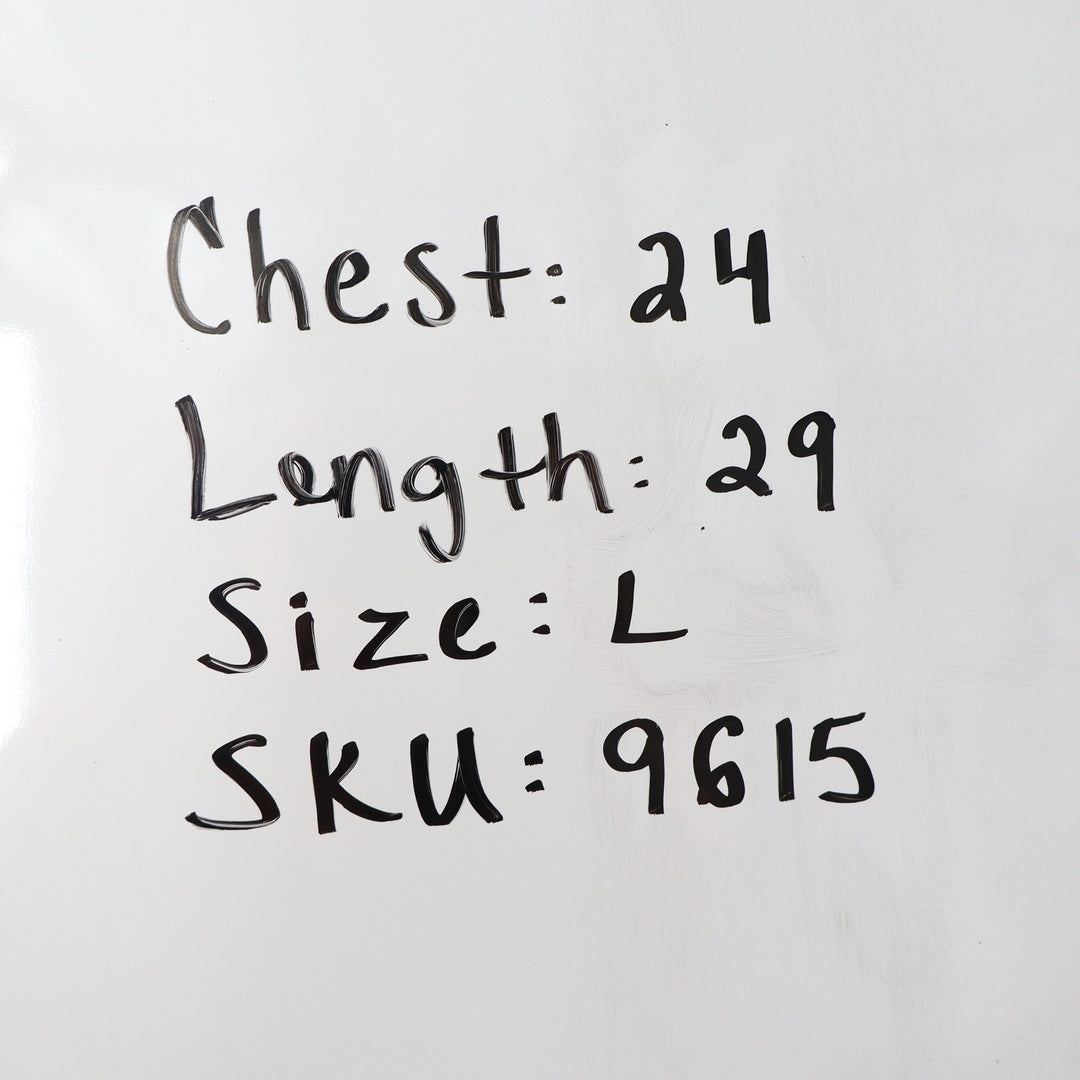 Chest: 24
Length: 29
Size: L
SKU: 9615